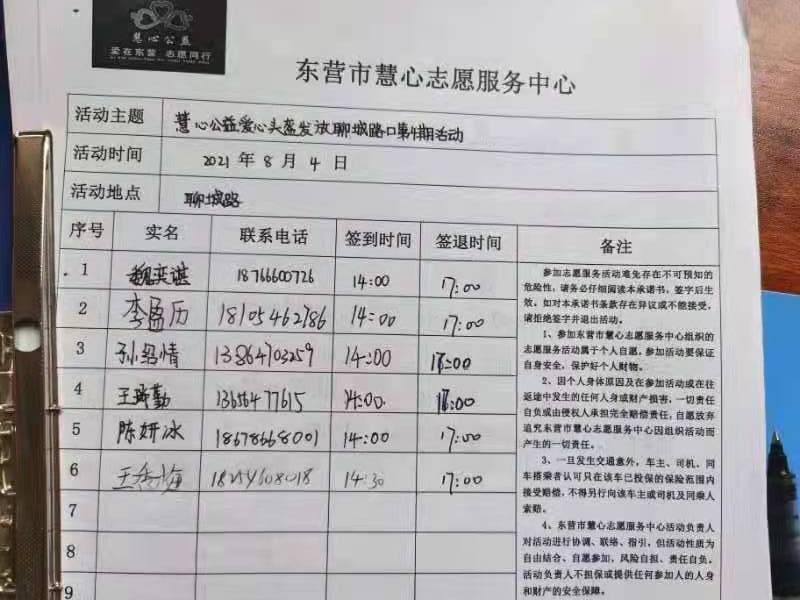 慧心公益
爱在东营 志愿同行
东营市慧心志愿服务中心
活动主题 慧心公益爱心头盔发放聊城路口第4期活动
活动时间 2021年8月4日
活动地点 聊城路
序号 实名 联系电话 签到时间 签退时间 备注
1 魏奕谌 18766600726 14:00 17:00
2 李盈历 18105462786 14:00 17:00
3 孙绍情 13864703259 14:00
4 王 勤 13656477615 14:00
5 陈妍冰 18678668001 14:00 17:00
6 王 18254608018 14:30 17:00
7
8
9
参加志愿服务活动难免存在不可预知的
危险性,请务必仔细阅读本承诺书,签字后生
效,如对本承诺书条款存在异议或不能接受,
请拒绝签字并退出活动。
1、参加东营市慧心志愿服务中心组织的
志愿服务活动属于个人自愿,参加活动要保证
自身安全,保护好个人财物。
2、因个人身体原因及在参加活动或在往
返途中发生的任何人身或财产损害,一切责任
自负或由侵权人承担完全赔偿责任,自愿放弃
追究东营市慧心志愿服务中心因组织活动而
产生的一切责任。
3、一旦发生交通意外,车主、司机、同
车搭乘者认可只在该车已投保的保险范围内
接受赔偿,不得另行向该车主或司机及同乘人
索赔。
4、东营市慧心志愿服务中心活动负责人
对活动进行协调、联络、指引,但活动性质为
自由结合、自愿参加,风险自担、责任自负。
活动负责人不担保或提供任何参加人的人身
和财产的安全保障。